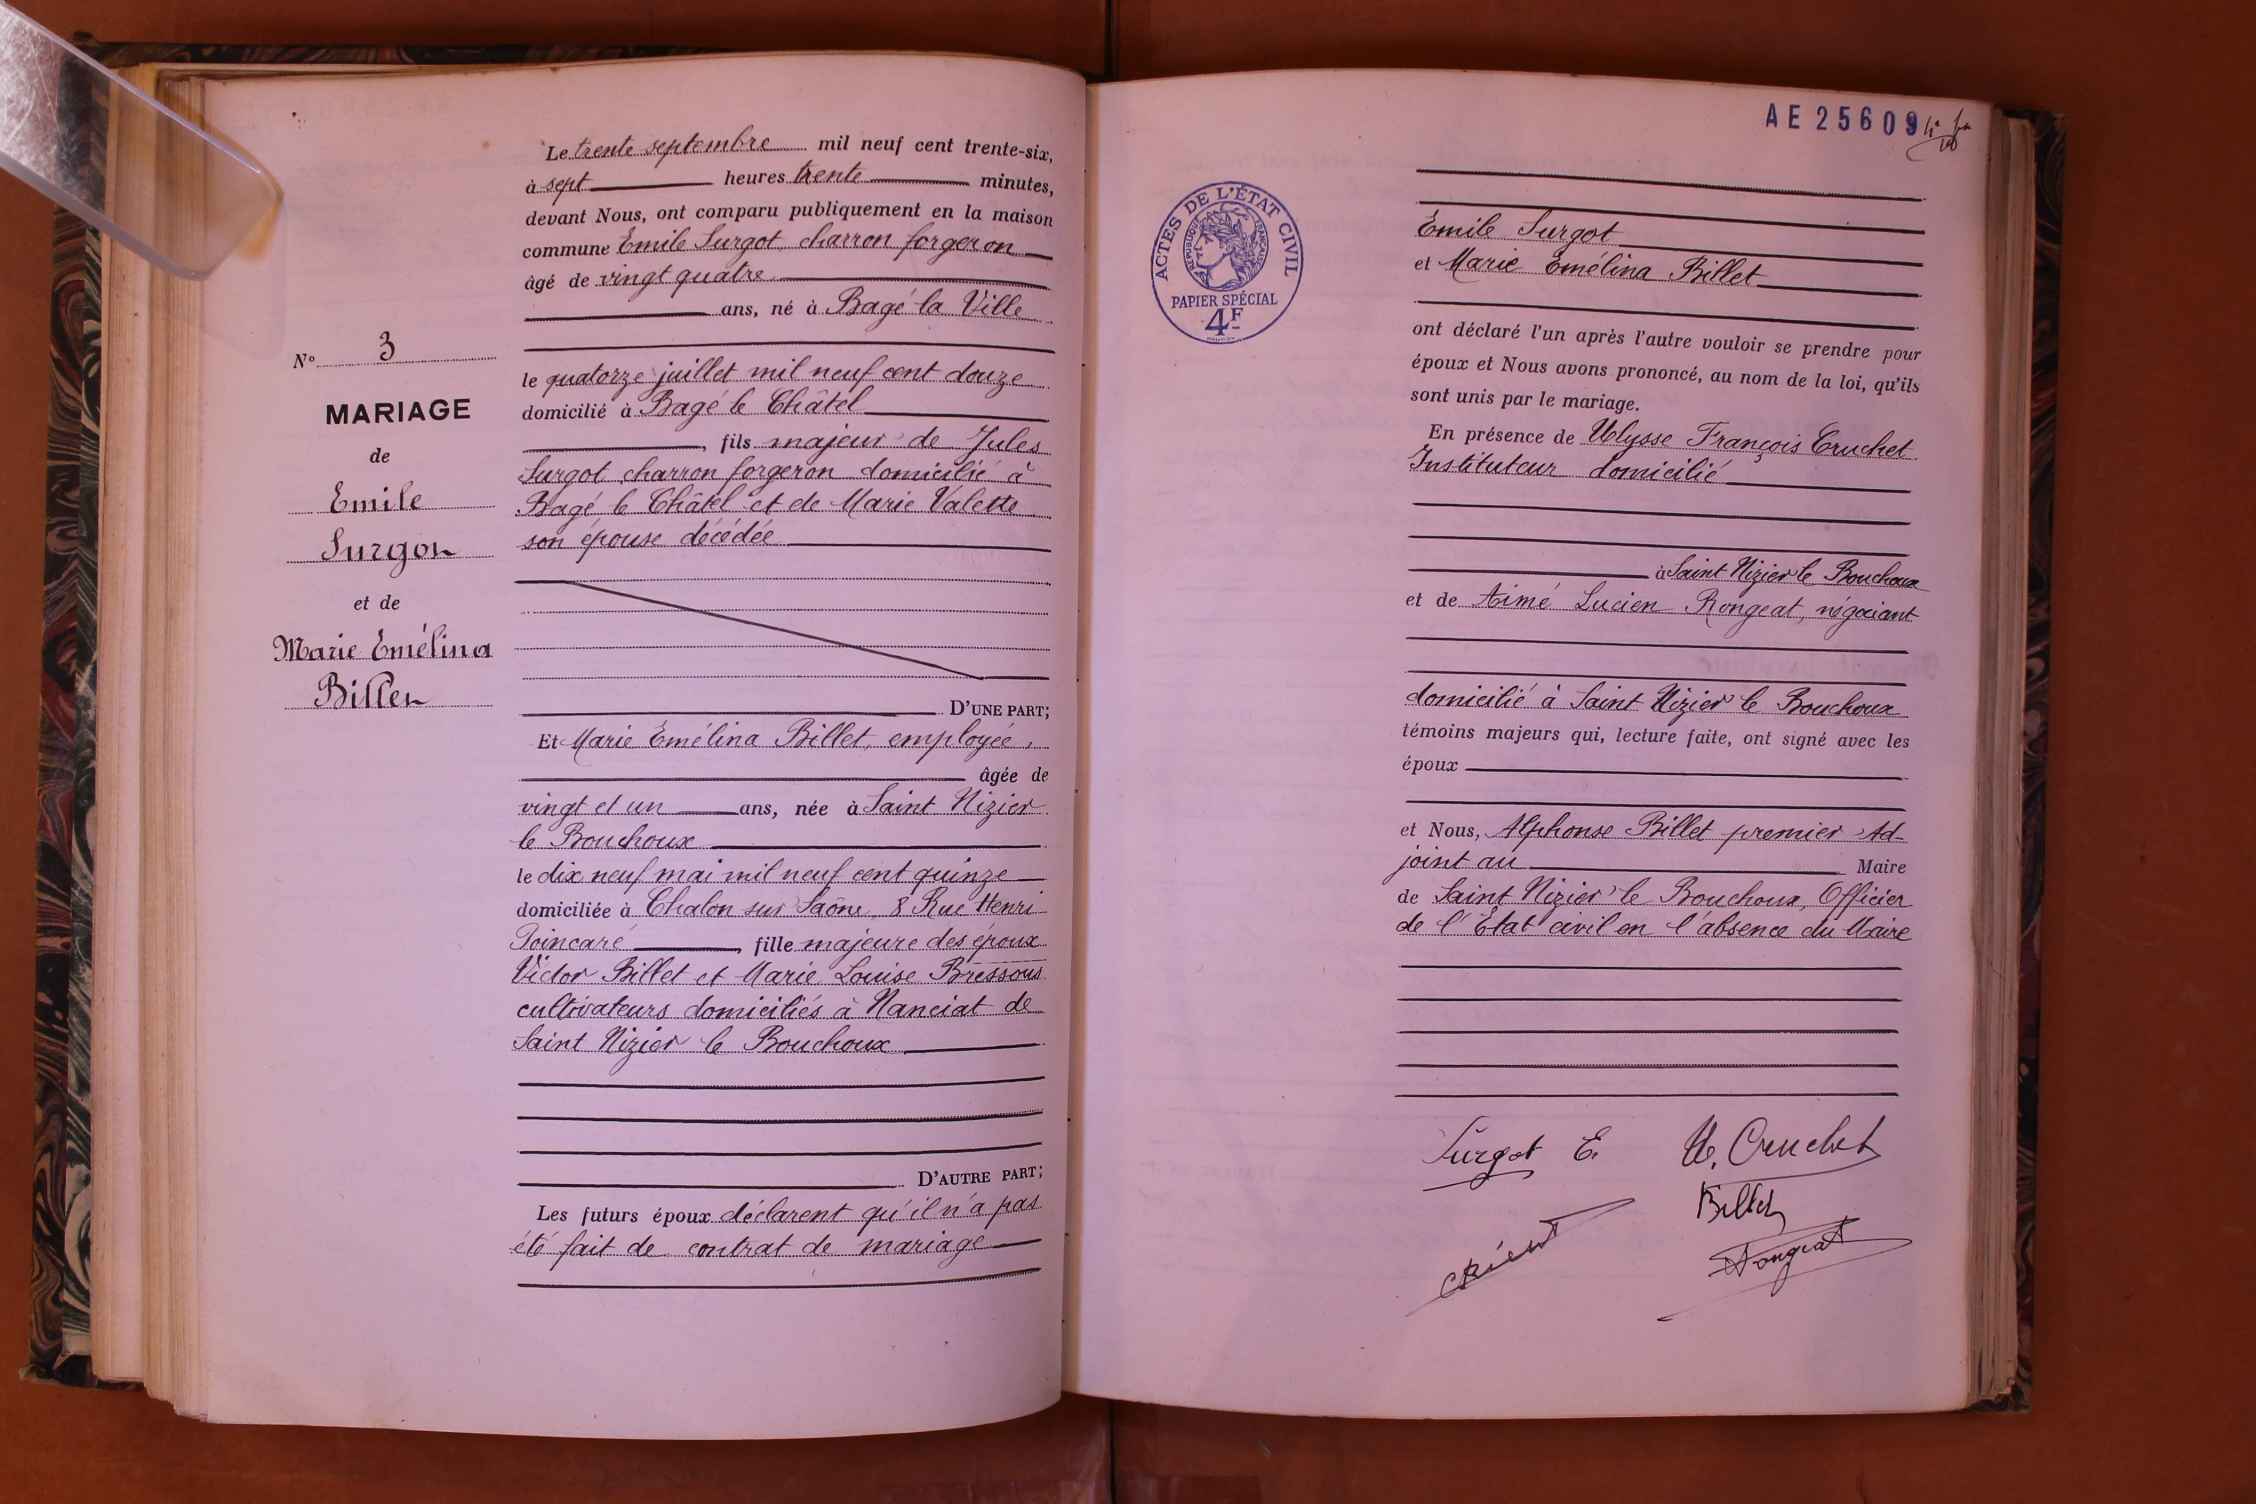 N° 3
MARIAGE
de
Emile
Surgot
et de
Marie Emélina
Billet
Le trente septembre mil neuf cent trente-six,
à sept heures trente minutes,
devant Nous, ont comparu publiquement en la maison
commune Emile Surgot, charron forgeron
âgé de vingt quatre
ans, né à Bagé la Ville
le quatorze juillet mil neuf cent douze
domicilié à Bagé le Châtel
, fils majeur de Jules
Surgot charron forgeron domicilié à
Bagé le Châtel et de Marie Valette
son épouse décédée
D'UNE PART;
Et Marie Emélina Billet, employée,
âgée de
vingt et un ans, née à Saint Nizier
le Bouchoux
le dix neuf mai mil neuf cent quinze
domiciliée à Chalon sur Saône, 8 Rue Henri
Poincaré , fille majeure des époux
Victor Billet et Marie Louise Bressous
cultivateurs domiciliés à Nanciat de
Saint Nizier le Bouchoux
D'AUTRE PART;
Les futurs époux déclarent qu'il n'a pas
été fait de contrat de mariage
AE 25609
ACTES DE L'ÉTAT CIVIL
RÉPUBLIQUE FRANÇAISE
PAPIER SPÉCIAL
4F
Emile Surgot
et Marie Emélina Billet
ont déclaré l'un après l'autre vouloir se prendre pour
époux et Nous avons prononcé, au nom de la loi, qu'ils
sont unis par le mariage.
En présence de Ulysse François Cruchet
Instituteur domicilié
à Saint Nizier le Bouchoux
et de Aimé Lucien Rongeat, négociant
domicilié à Saint Nizier le Bouchoux
témoins majeurs qui, lecture faite, ont signé avec les
époux
et Nous, Alphonse Billet premier Ad-
joint au Maire
de Saint Nizier le Bouchoux, Officier
de l'Etat civil en l'absence du Maire
Surgot E. U. Cruchet
Billet
Rongeat